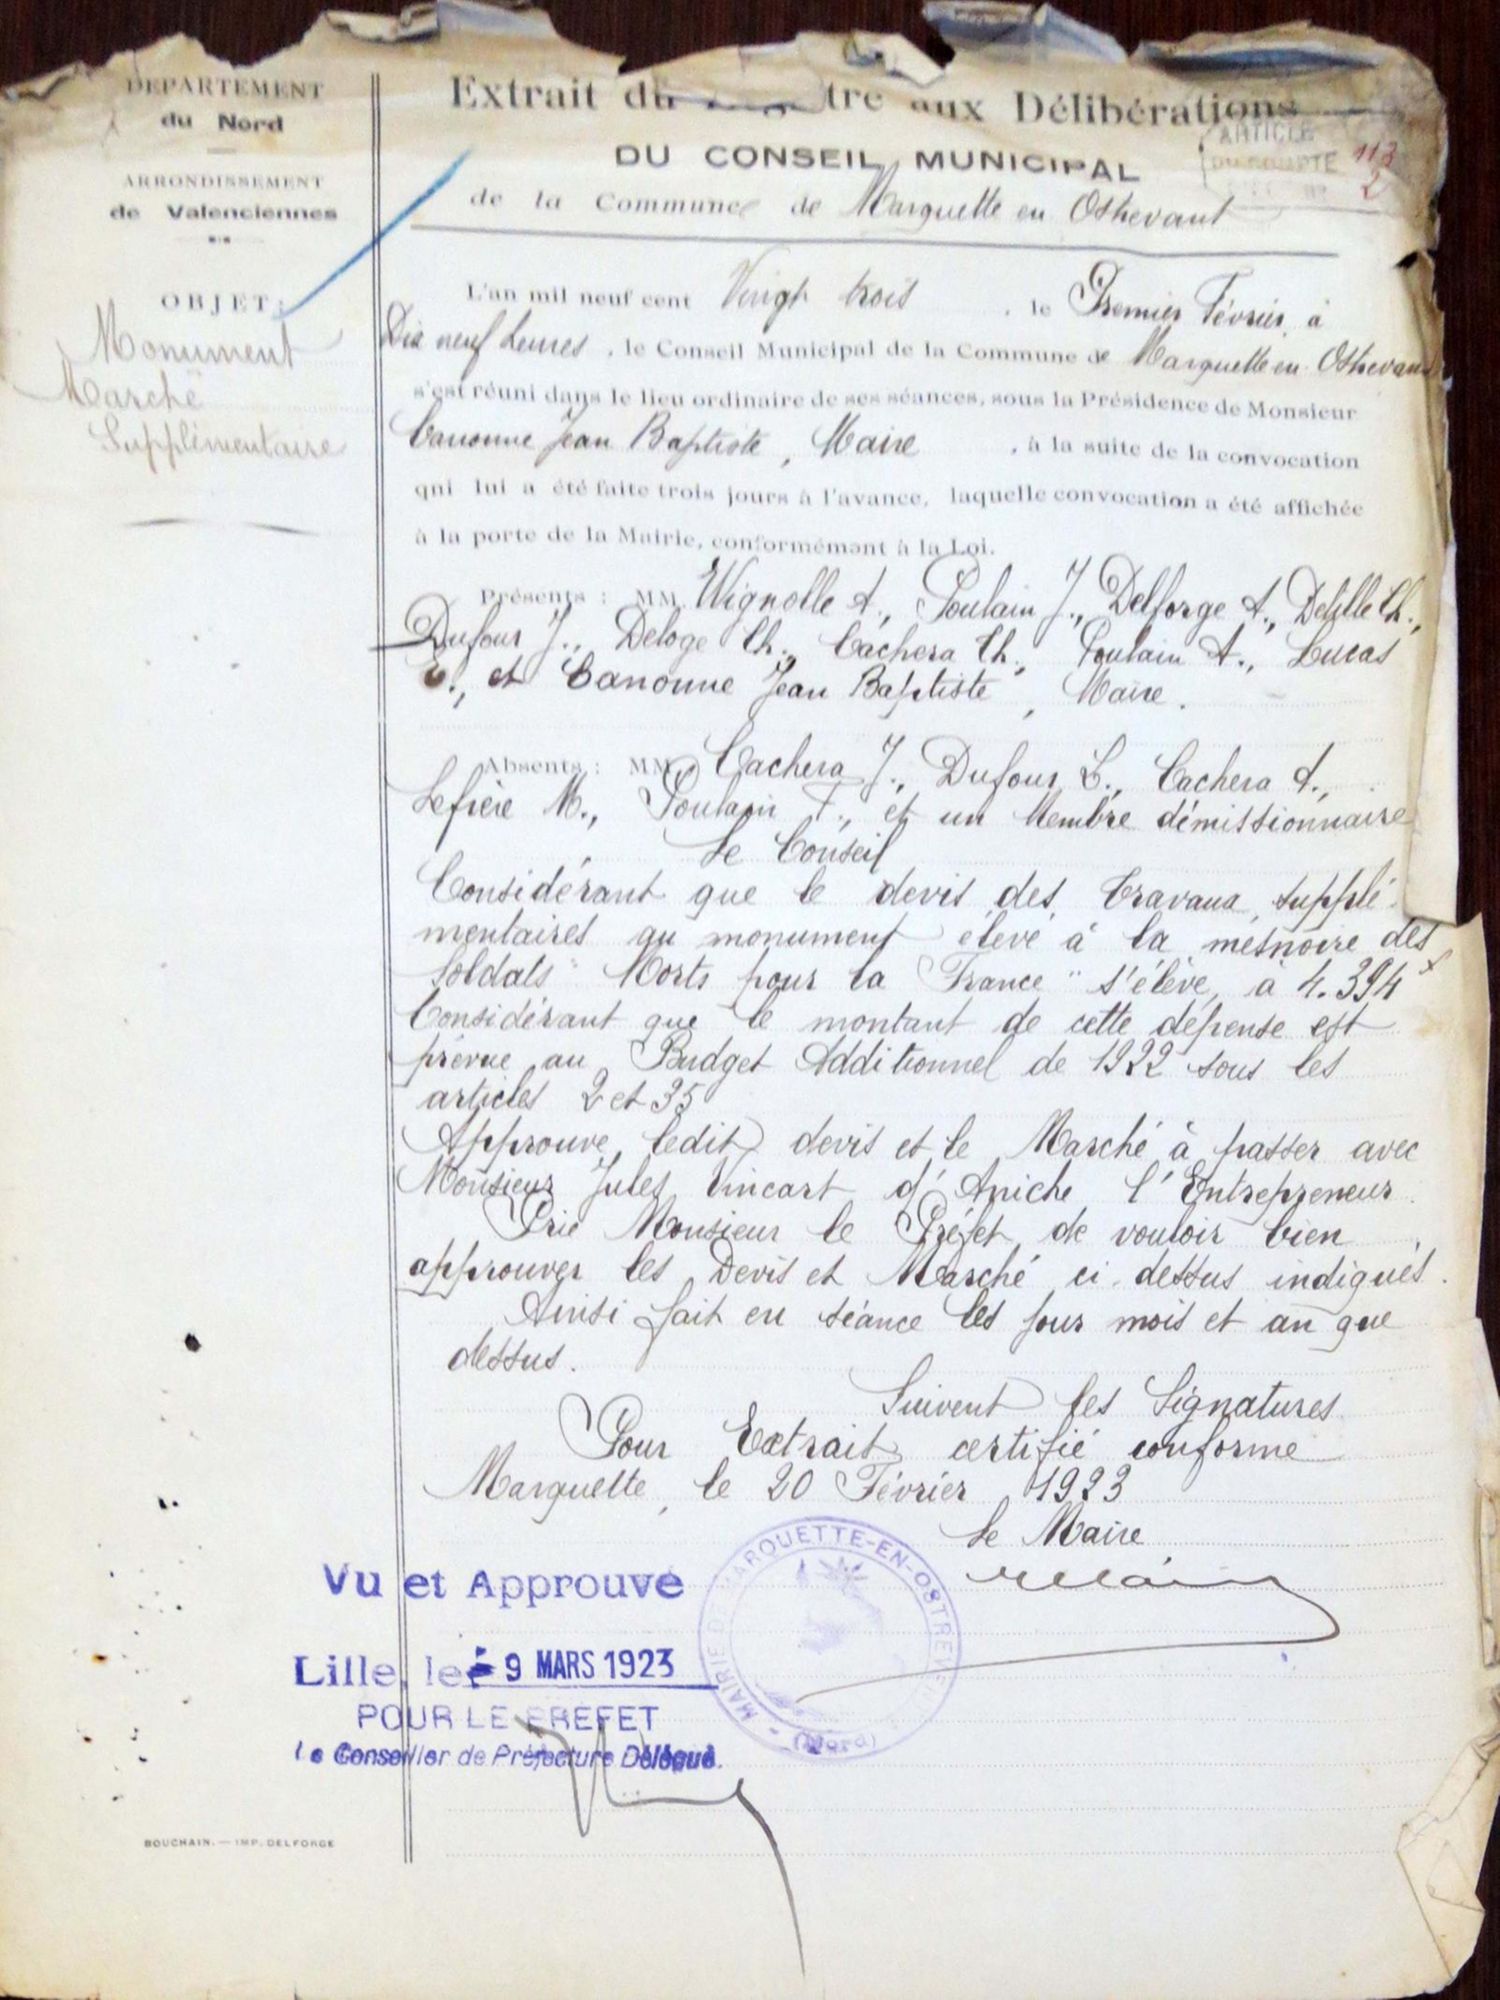 DEPARTEMENT
du Nord
ARRONDISSEMENT
de Valenciennes
OBJET:
Monument
Marché
Supplémentaire
Extrait du tre aux Délibérations
DU CONSEIL MUNICIPAL
ARTICLE
DU COMPTE 113
2
de la Commune de Marquette en Osthevant
L'an mil neuf cent Vingt trois, le Premier Février à
Dix neuf heures, le Conseil Municipal de la Commune de Marquette en Osthevant
s'est réuni dans le lieu ordinaire de ses séances, sous la Présidence de Monsieur
Canonne Jean Baptiste, Maire, à la suite de la convocation
qui lui a été faite trois jours à l'avance, laquelle convocation a été affichée
à la porte de la Mairie, conformément à la Loi.
Présents : MM. Wignolle A., Poulain J., Delforge A., Delille Ch.,
Dufour J., Deloge Ch., Cachera Ch., Poulain A., Lucas
C., et Canonne Jean Baptiste, Maire.
Absents : MM. Cachera J., Dufour L., Cachera A.,
Lefière M., Poulain F., et un Membre démissionnaire
Le Conseil
Considérant que le devis des travaux supplé-
mentaires au monument élevé à la mémoire des
Soldats "Morts pour la France" s'élève à 4.394 f
Considérant que le montant de cette dépense est
prévue au Budget Additionnel de 1922 sous les
articles 2 et 35
Approuve ledit devis et le Marché à passer avec
Monsieur Jules Vincart d'Aniche l'Entrepreneur.
Prie Monsieur le Préfet de vouloir bien
approuver les Devis et Marché ci-dessus indiqués.
Ainsi fait en séance les jour mois et an que
dessus.
Suivent les Signatures
Pour Extrait certifié conforme
Marquette, le 20 Février 1923
Le Maire
MAIRIE DE MARQUETTE-EN-OSTREVENT
(Nord)
Vu et Approuvé
Lille, le - 9 MARS 1923
POUR LE PREFET
Le Conseiller de Préfecture Délégué.
BOUCHAIN. — IMP. DELFORGE